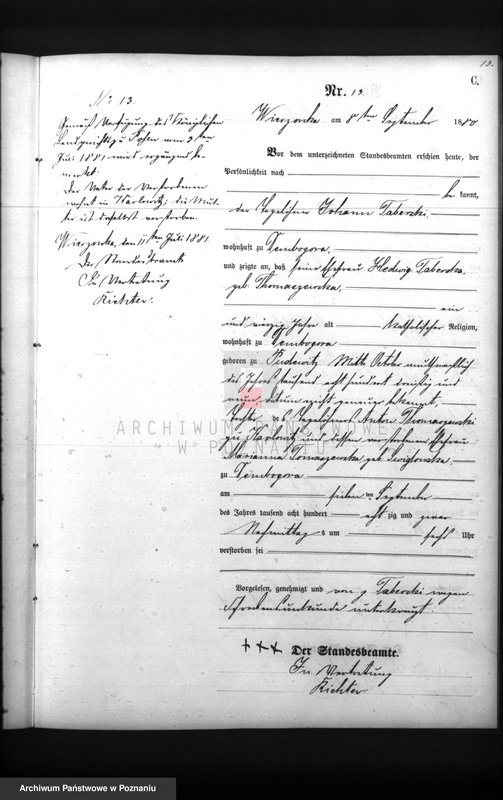 13.
C.
Nr. 13.
Wierzonka am 8ten September 1880
Vor dem unterzeichneten Standesbeamten erschien heute, der
Persönlichkeit nach
bekannt,
der Tagelöhner Johann Taberski.
wohnhaft zu Dembogora,
und zeigte an, daß seine Ehefrau Hedwig Taberska,
geb. Thomaszewska,
ein
und vierzig Jahre alt katholischer Religion,
wohnhaft zu Dembogora
geboren zu Pudewitz Mitte October muthmaßlich
des Jahres tausend acht hundert dreißig und
neun, Datum nicht genau bekannt,
Tochter des Tagelöhners Anton Thomaszewski
zu und dessen verstorbenen Ehefrau
Marianna Tomaszewska geb.
zu Dembogora
am sieben ten September
des Jahres tausend acht hundert acht zig und zwar
Nachmittags um sechs Uhr
verstorben sei
Vorgelesen, genehmigt und von p Taberski wegen
Schreibensunkunde unterkreuzt
+++ Der Standesbeamte.
In Vertretung
Richter
No 13.
Gemäß Verfügung des Königlichen
Landgerichts zu Posen vom 2ten
Juli 1881 wird ergänzend be-
merkt:
Der Vater der Verstorbenen
wohnt in die Mut-
ter ist daselbst verstorben.
Wierzonka, den 11ten Juli 1881.
Der Standesbeamte
In Vertretung
Richter.
ARCHIWUM PAŃSTWOWE
W POZNANIU
Archiwum Państwowe w Poznaniu